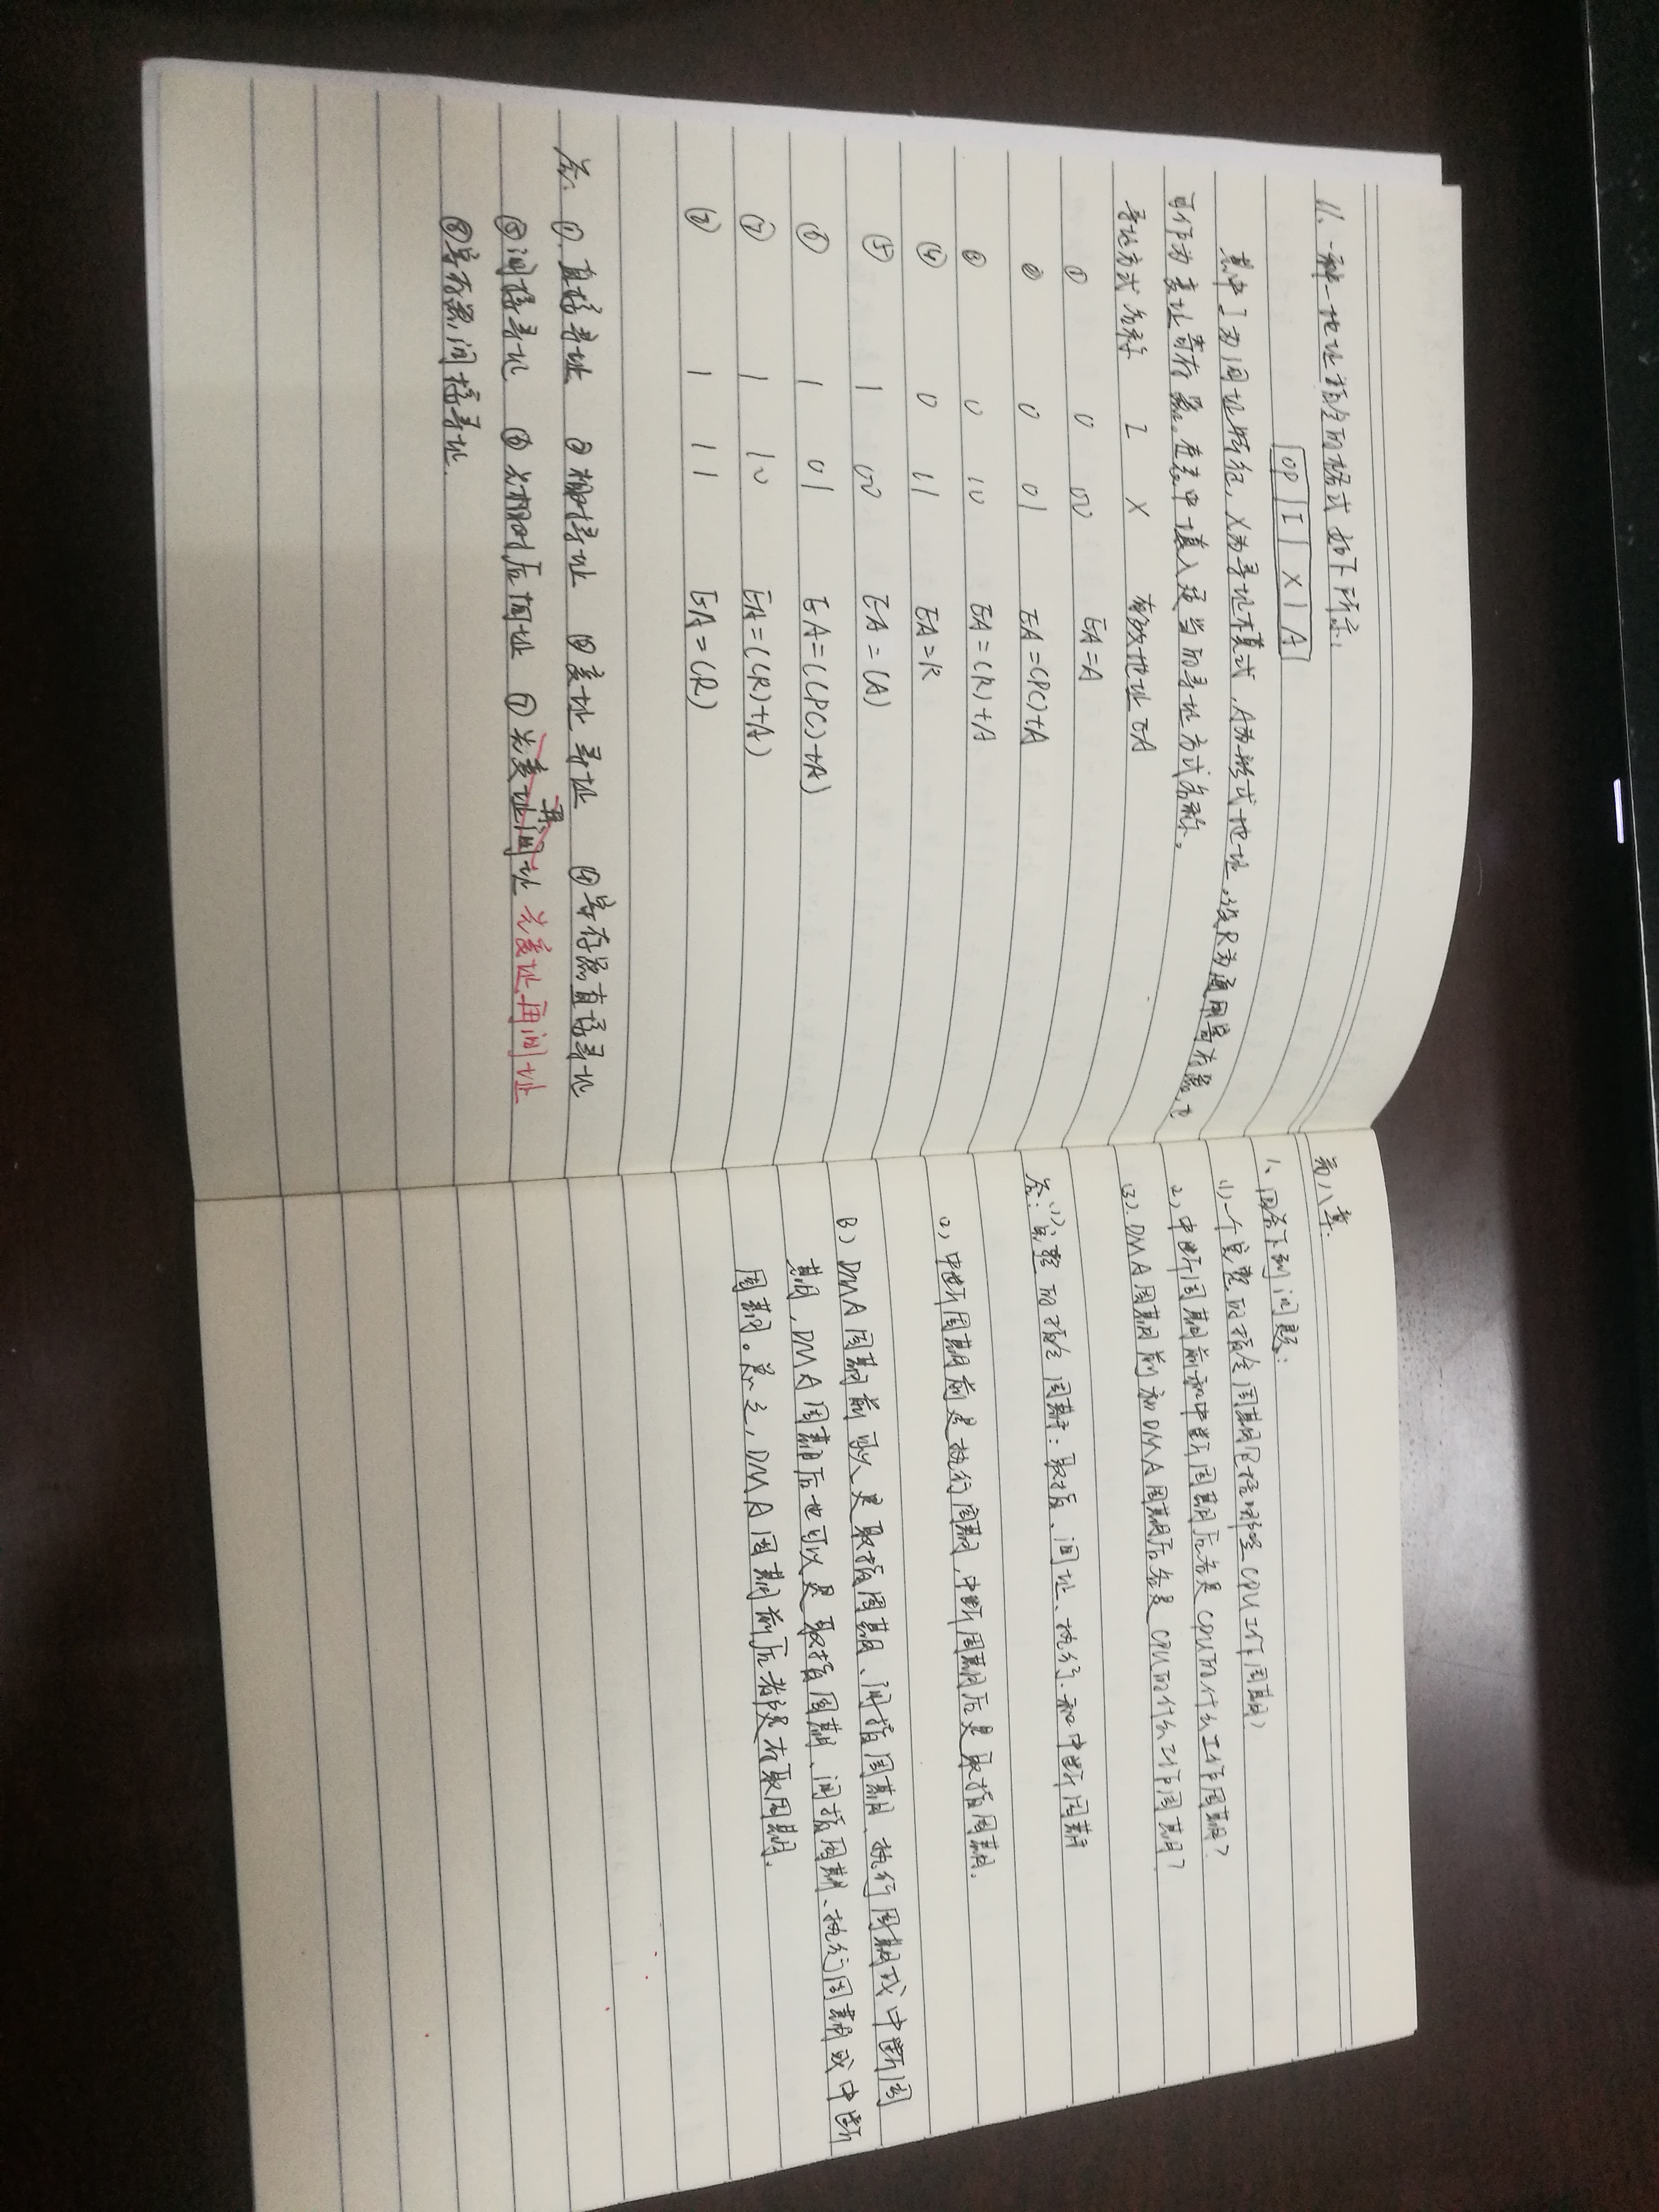 11. 一种一地址指令的格式如下所示:
OP I X A
其中 I 为间址特征, X为寻址模式, A为形式地址, 设R为通用寄存器, 也
可作为变址寄存器。在表中填入适当的寻址方式名称。
寻址方式名称 I X 有效地址EA
① 0 00 EA=A
② 0 01 EA=(PC)+A
③ 0 10 EA=(R)+A
④ 0 11 EA=R
⑤ 1 00 EA=(A)
⑥ 1 01 EA=((PC)+A)
⑦ 1 10 EA=((R)+A)
⑧ 1 11 EA=(R)
答: ① 直接寻址 ② 相对寻址 ③ 变址寻址 ④ 寄存器直接寻址
⑤ 间接寻址 ⑥ 先相对后间址 ⑦ 先变址再间址 先变址再间址
⑧ 寄存器间接寻址.
第八章.
1、回答下列问题:
(1) 一个完整的指令周期包括哪些CPU工作周期?
(2) 中断周期前和中断周期后各是CPU的什么工作周期?
(3). DMA周期前和DMA周期后各是CPU的什么工作周期?
答: (1) 完整的指令周期: 取指、间址、执行、和中断周期
(2) 中断周期前是执行周期, 中断周期后是取指周期.
(3) DMA周期前可以是取指周期、间指周期、执行周期或中断周
期, DMA周期后也可以是取指周期、间指周期、执行周期或中断
周期。总之, DMA周期前后都是存取周期.